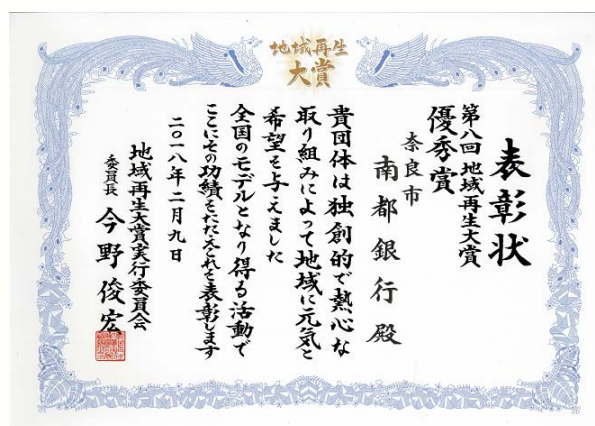 地域再生
大賞
表彰状
第八回 地域再生大賞
優秀賞
奈良市
南都銀行殿
貴団体は独創的で熱心な
取り組みによって地域に元気と
希望を与えました
全国のモデルとなり得る活動で
ここにその功績をたたえこれを表彰します
二〇一八年二月九日
地域再生大賞実行委員会
委員長 今野俊宏